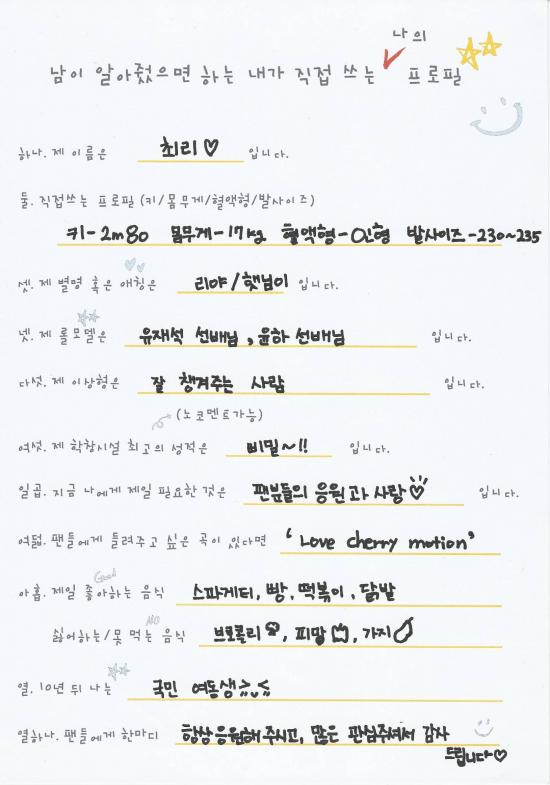 나의
남이 알아줬으면 하는 내가 직접 쓰는 프로필
하나. 제 이름은 최리♡ 입니다.
둘. 직접쓰는 프로필 (키/몸무게/혈액형/발사이즈)
키-2m80 몸무게-17kg 혈액형-인형 발사이즈-230~235
셋. 제 별명 혹은 애칭은 리야/햇님이 입니다.
넷. 제 롤모델은 유재석 선배님, 윤하 선배님 입니다.
다섯. 제 이상형은 잘 챙겨주는 사람 입니다.
(노코멘트가능)
여섯. 제 학창시설 최고의 성적은 비밀~!! 입니다.
일곱. 지금 나에게 제일 필요한 것은 팬분들의 응원과 사랑♡ 입니다.
여덟. 팬들에게 들려주고 싶은 곡이 있다면 'Love cherry motion'
Good
아홉. 제일 좋아하는 음식 스파게티, 빵, 떡볶이, 닭발
NO
싫어하는/못 먹는 음식 브로콜리, 피망, 가지
열. 10년 뒤 나는 국민 여동생
열하나. 팬들에게 한마디 항상 응원해 주시고, 많은 관심주셔서 감사
드립니다♡